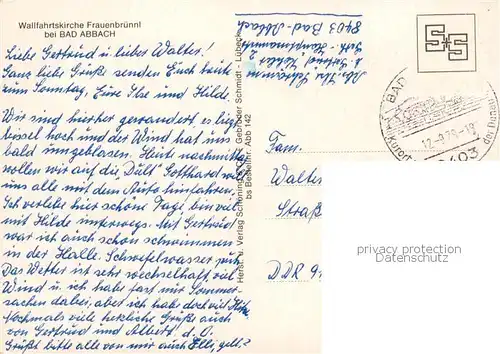 Wallfahrtskirche Frauenbrünnl
bei BAD ABBACH
Liebe Gertrud u liebes Walter!
Ganz liebe Grüße senden Euch heute
zum Sonntag, Eure Ilse und Hilde.
Wir sind hierher gewandert es liegt
hoch und der Wind hat uns
bald umgeblasen. Heut nachmittag
wollen wir auf die Dult Gotthard will
uns alle mit dem Auto hinfahren.
Ich verlebe hier schöne Tage bin viel
mit Hilde unterwegs. Mit Gertrud
war ich auch schon schwimmen
in der Halle. Schwefelwasser
Das Wetter ist sehr wechselhaft viel
Wind u. ich habe fast nur Sommer-
sachen dabei, aber ich habe doch viel
Nochmals viele herzliche Grüße auch
von Gertrud und Albert d. O.
Grüßt bitte alle von mir auch Elli, gell?
Herst. u. Verlag Schöning & Co + Gebrüder Schmidt - Lübeck
bs Bestellnr. Abb 142
8403 Bad Abbach
BAD
Kurort
12.-9.76.-
8403
Fam.
Walter
Straß
DDR 9
privacy protection
Datenschutz